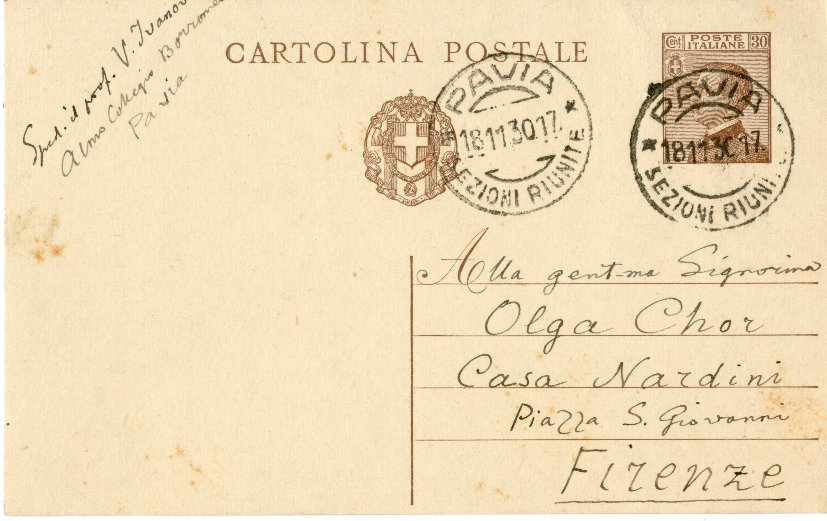 Sped: il prof. V. Ivanov
Almo Collegio Borromeo
Pavia
CARTOLINA POSTALE
Cent
POSTE
ITALIANE
30
PAVIA
18 11 30 17
SEZIONI RIUNITE
PAVIA
18 11 30 17
SEZIONI RIUNITE
Alla gent-ma Signorina
Olga Chor
Casa Nardini
Piazza S. Giovanni
Firenze